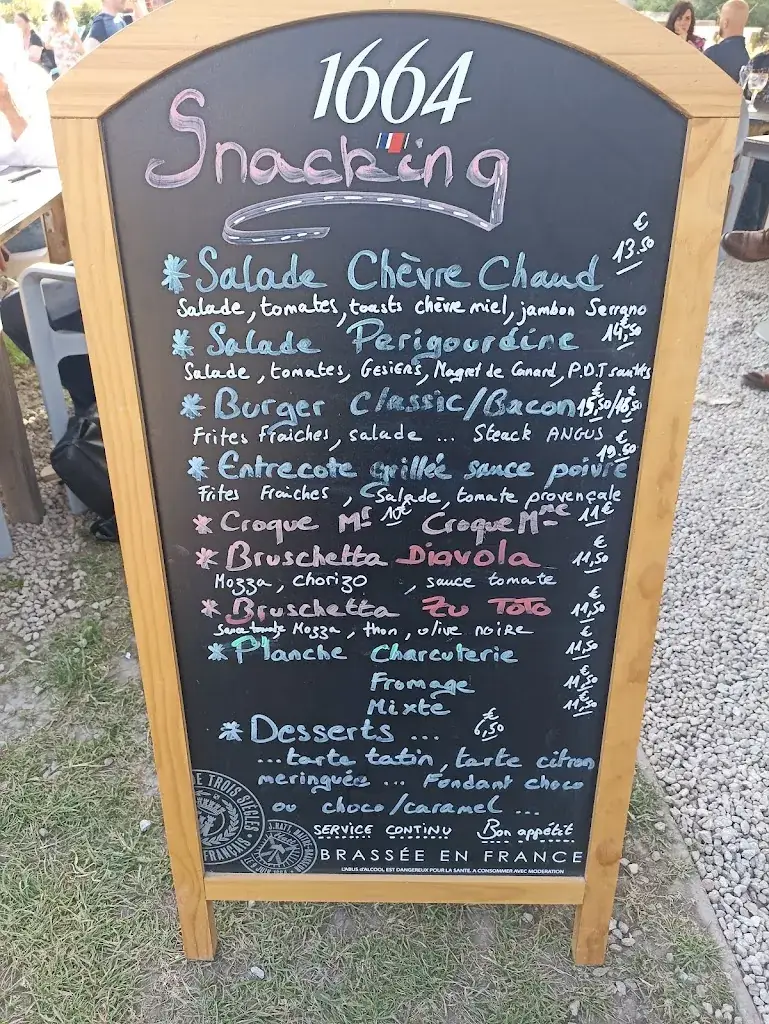 1664
Snacking
* Salade Chèvre Chaud 13.50 €
Salade, tomates, toasts chèvre miel, jambon Serrano
* Salade Perigourdine 14,50 €
Salade, tomates, Gesiers, Magret de Canard, P.D.T sautées
* Burger Classic/Bacon 15,50 €/16,50 €
Frites fraîches, salade ... Steack ANGUS
* Entrecote grillée sauce poivre 19.50 €
Frites Fraiches, Salade, tomate provençale
* Croque Mr 10€ Croque Mme 11€
* Bruschetta Diavola 11,50 €
Mozza, chorizo , sauce tomate
* Bruschetta Zu TOTO 11,50 €
Sauce tomate Mozza, thon, olive noire
* Planche Charcuterie 11,50 €
Fromage 11,50 €
Mixte 11,50 €
* Desserts ... 6,50 €
...tarte tatin, tarte citron
meringuée ... Fondant choco
ou choco/caramel ...
SERVICE CONTINU Bon appétit
DE TROIS SIÈCLES
FRANÇAIS
BRASSÉE EN FRANCE
L'ABUS d'ALCOOL EST DANGEREUX POUR LA SANTE, A CONSOMMER AVEC MODERATION